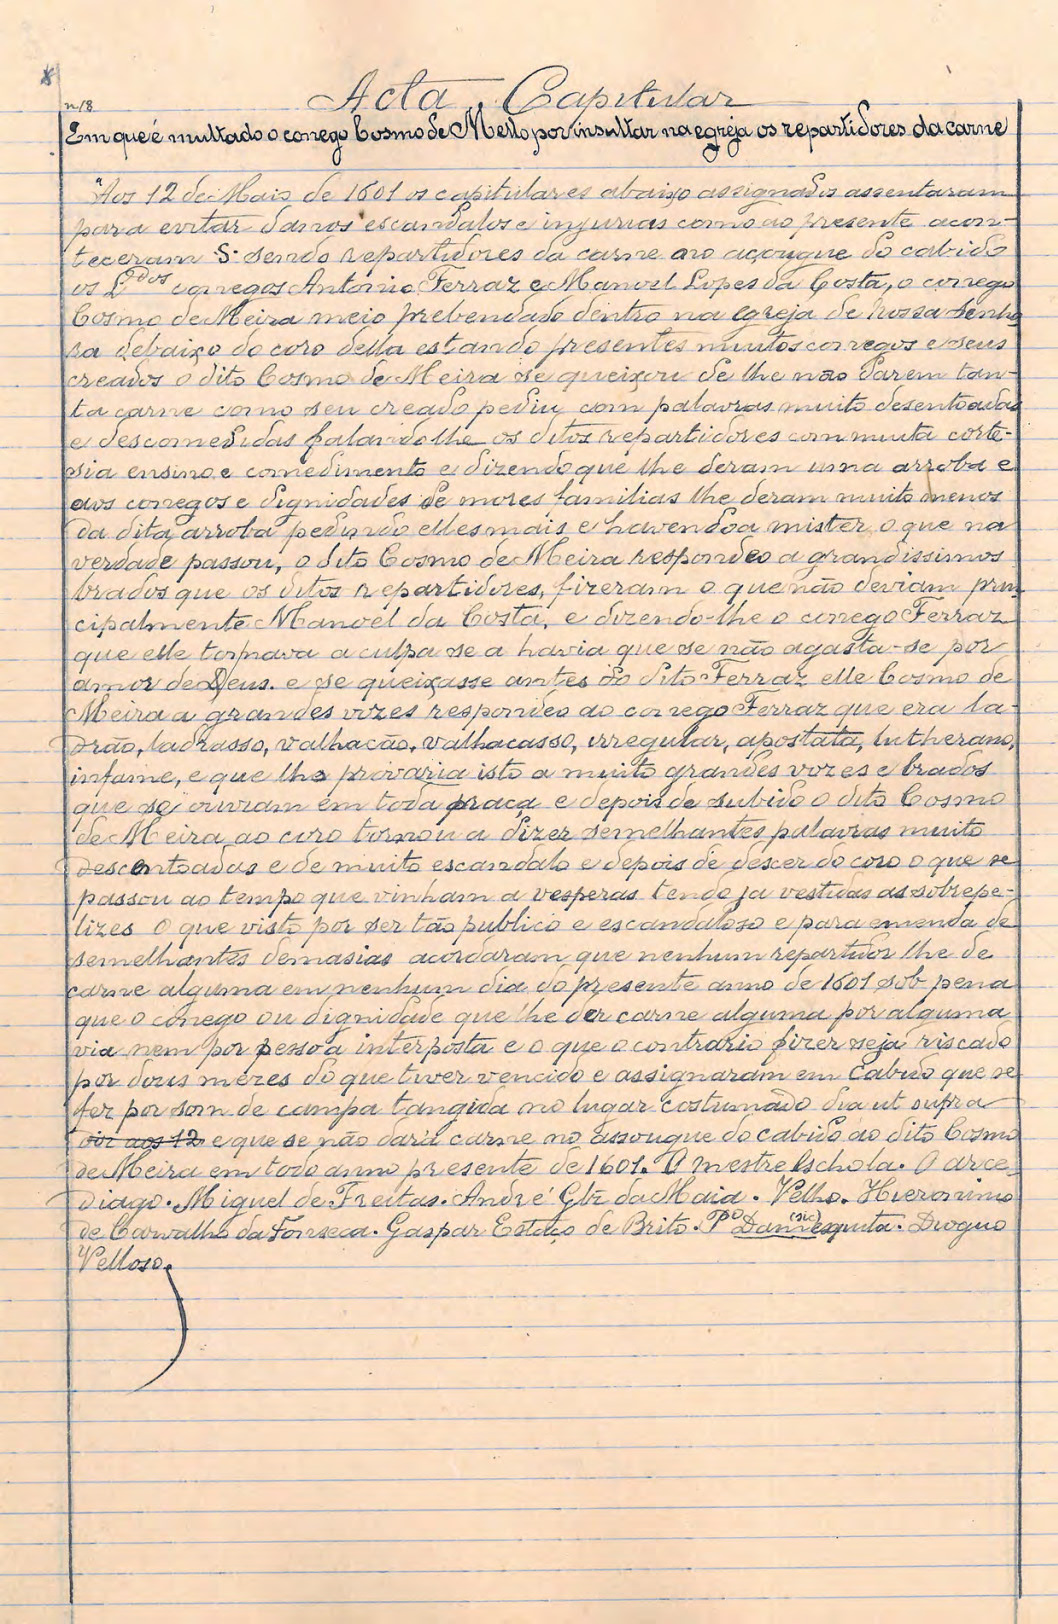 n/8
Acta Capitular
Em que é multado o conego Cosmo de Mello por insultar na egreja os repartidores da carne
"Aos 12 de Maio de 1601 os capitulares abaixo assignados assentaram
para evitar danos escandalos e injurias como ao presente acon-
teceram S. sendo repartidores da carne no açougue do cabido
os Ldos conegos Antonio Ferraz e Manoel Lopes da Costa, o conego
Cosmo de Meira meio prebendado dentro na egreja de Nossa Senho
ra debaixo do coro della estando presentes muitos conegos e seus
creados o dito Cosmo de Meira se queixou de lhe não darem tan-
ta carne como seu creado pediu com palavras muito desentoadas
e descomedidas falando-lhe os ditos repartidores com muita corte-
sia ensino e comedimento e dizendo que lhe deram uma arroba e
aos conegos e dignidades de mores familias lhe deram muito menos
da dita arroba pedindo elles mais e havendo-a mister, o que na
verdade passou, o dito Cosmo de Meira respondeo a grandissimos
brados que os ditos repartidores, fizeram o que não deviam prin-
cipalmente Manoel da Costa, e dizendo-lhe o conego Ferraz
que elle tomava a culpa se a havia que se não agasta-se por
amor de Deus. e se queixasse antes do dito Ferraz elle Cosmo de
Meira a grandes vozes respondeo ao conego Ferraz que era la-
drão, ladrasso, valhacão, valhacasso, irregular, apostata, lutherano,
infame, e que lho provaria isto a muito grandes vozes e brados
que se ouviam em toda praça e depois de subido o dito Cosmo
de Meira ao coro tornou a dizer semelhantes palavras muito
desentoadas e de muito escandalo e depois de descer do coro o que se
passou ao tempo que vinham a vesperas tendo ja vestidas as sobrepe-
lizes O que visto por ser tão publico e escandaloso e para emenda de
semelhantes demasias acordaram que nenhum repartidor lhe de
carne alguma em nenhum dia do presente anno de 1601 sob pena
que o conego ou dignidade que lhe der carne alguma por alguma
via nem por pessoa interposta e o que o contrario fizer seja riscado
por dous mezes do que tiver vencido e assignaram em Cabido que se
fez por som de campa tangida no lugar costumado dia ut supra
aos 12 e que se não dará carne no assougue do cabido ao dito Cosmo
de Meira em todo anno presente de 1601. O mestre Eschola. O arce
diago. Miguel de Freitas. André Glz da Maia. Velho. Hieronimo
de Carvalho da Fonseca. Gaspar Estaço de Brito. Po Dan(sic)esquita. Dioguo
Velloso.